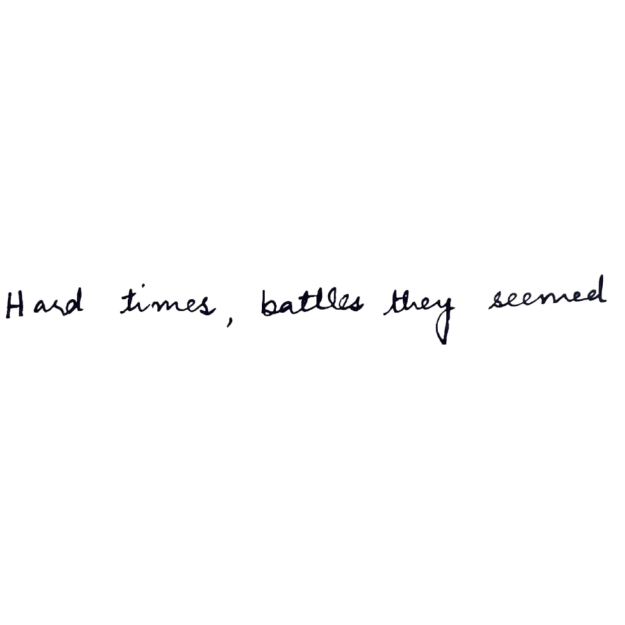 Hard times, battles they seemed